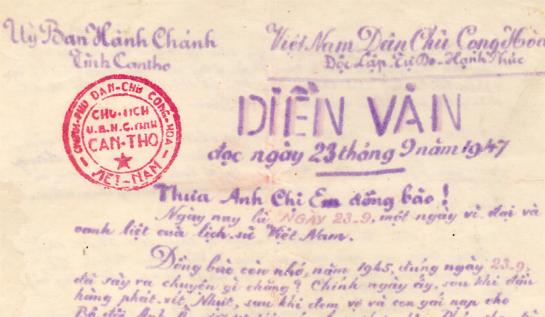 Uỷ Ban Hành Chánh
Tỉnh Cantho
Việt Nam Dân Chủ Cộng Hòa
Độc Lập. Tự Do. Hạnh Phúc
CHÁNH-PHỦ DÂN-CHỦ CỘNG-HÒA
CHỦ-TỊCH
U.B.H.C. TỈNH
CAN-THO
VIỆT-NAM
DIỄN VĂN
đọc ngày 23 tháng 9 năm 1947
Thưa Anh Chị Em đồng bào!
Ngày nay là NGÀY 23-9, một ngày vĩ đại và
oanh liệt của lịch sử Việt Nam.
Đồng bào còn nhớ, năm 1945, đúng ngày 23-9,
đã xảy ra chuyện gì chăng? Chính ngày ấy, sau khi đầu
hàng phát xít Nhựt, sau khi đem vợ và con gái nạp cho